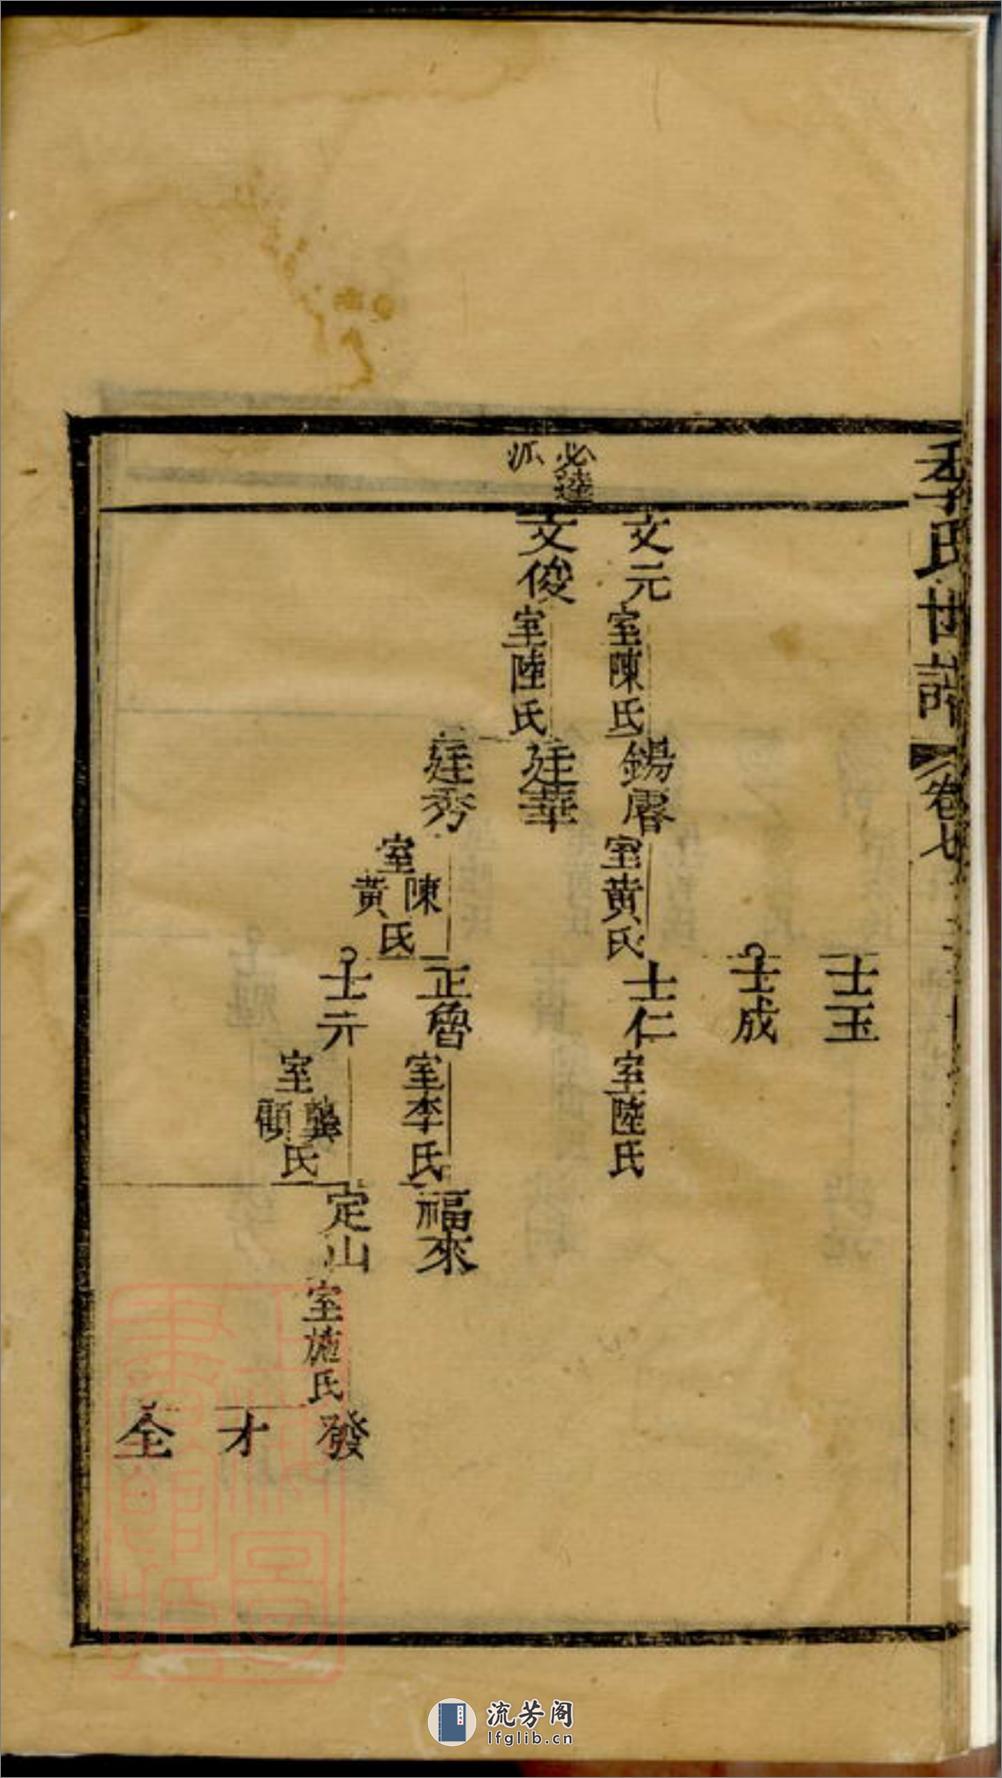 季氏世譜
卷七
士玉
士成
文元
室陳氏
錫𤲞
室黃氏
士仁
室陸氏
必達
派
文俊
室陸氏
廷華
廷秀
室陳
黃氏
正魯
室李氏
福來
士元
室龔
顧氏
定山
室施氏
發
才
全
流芳阁
lfglib.cn